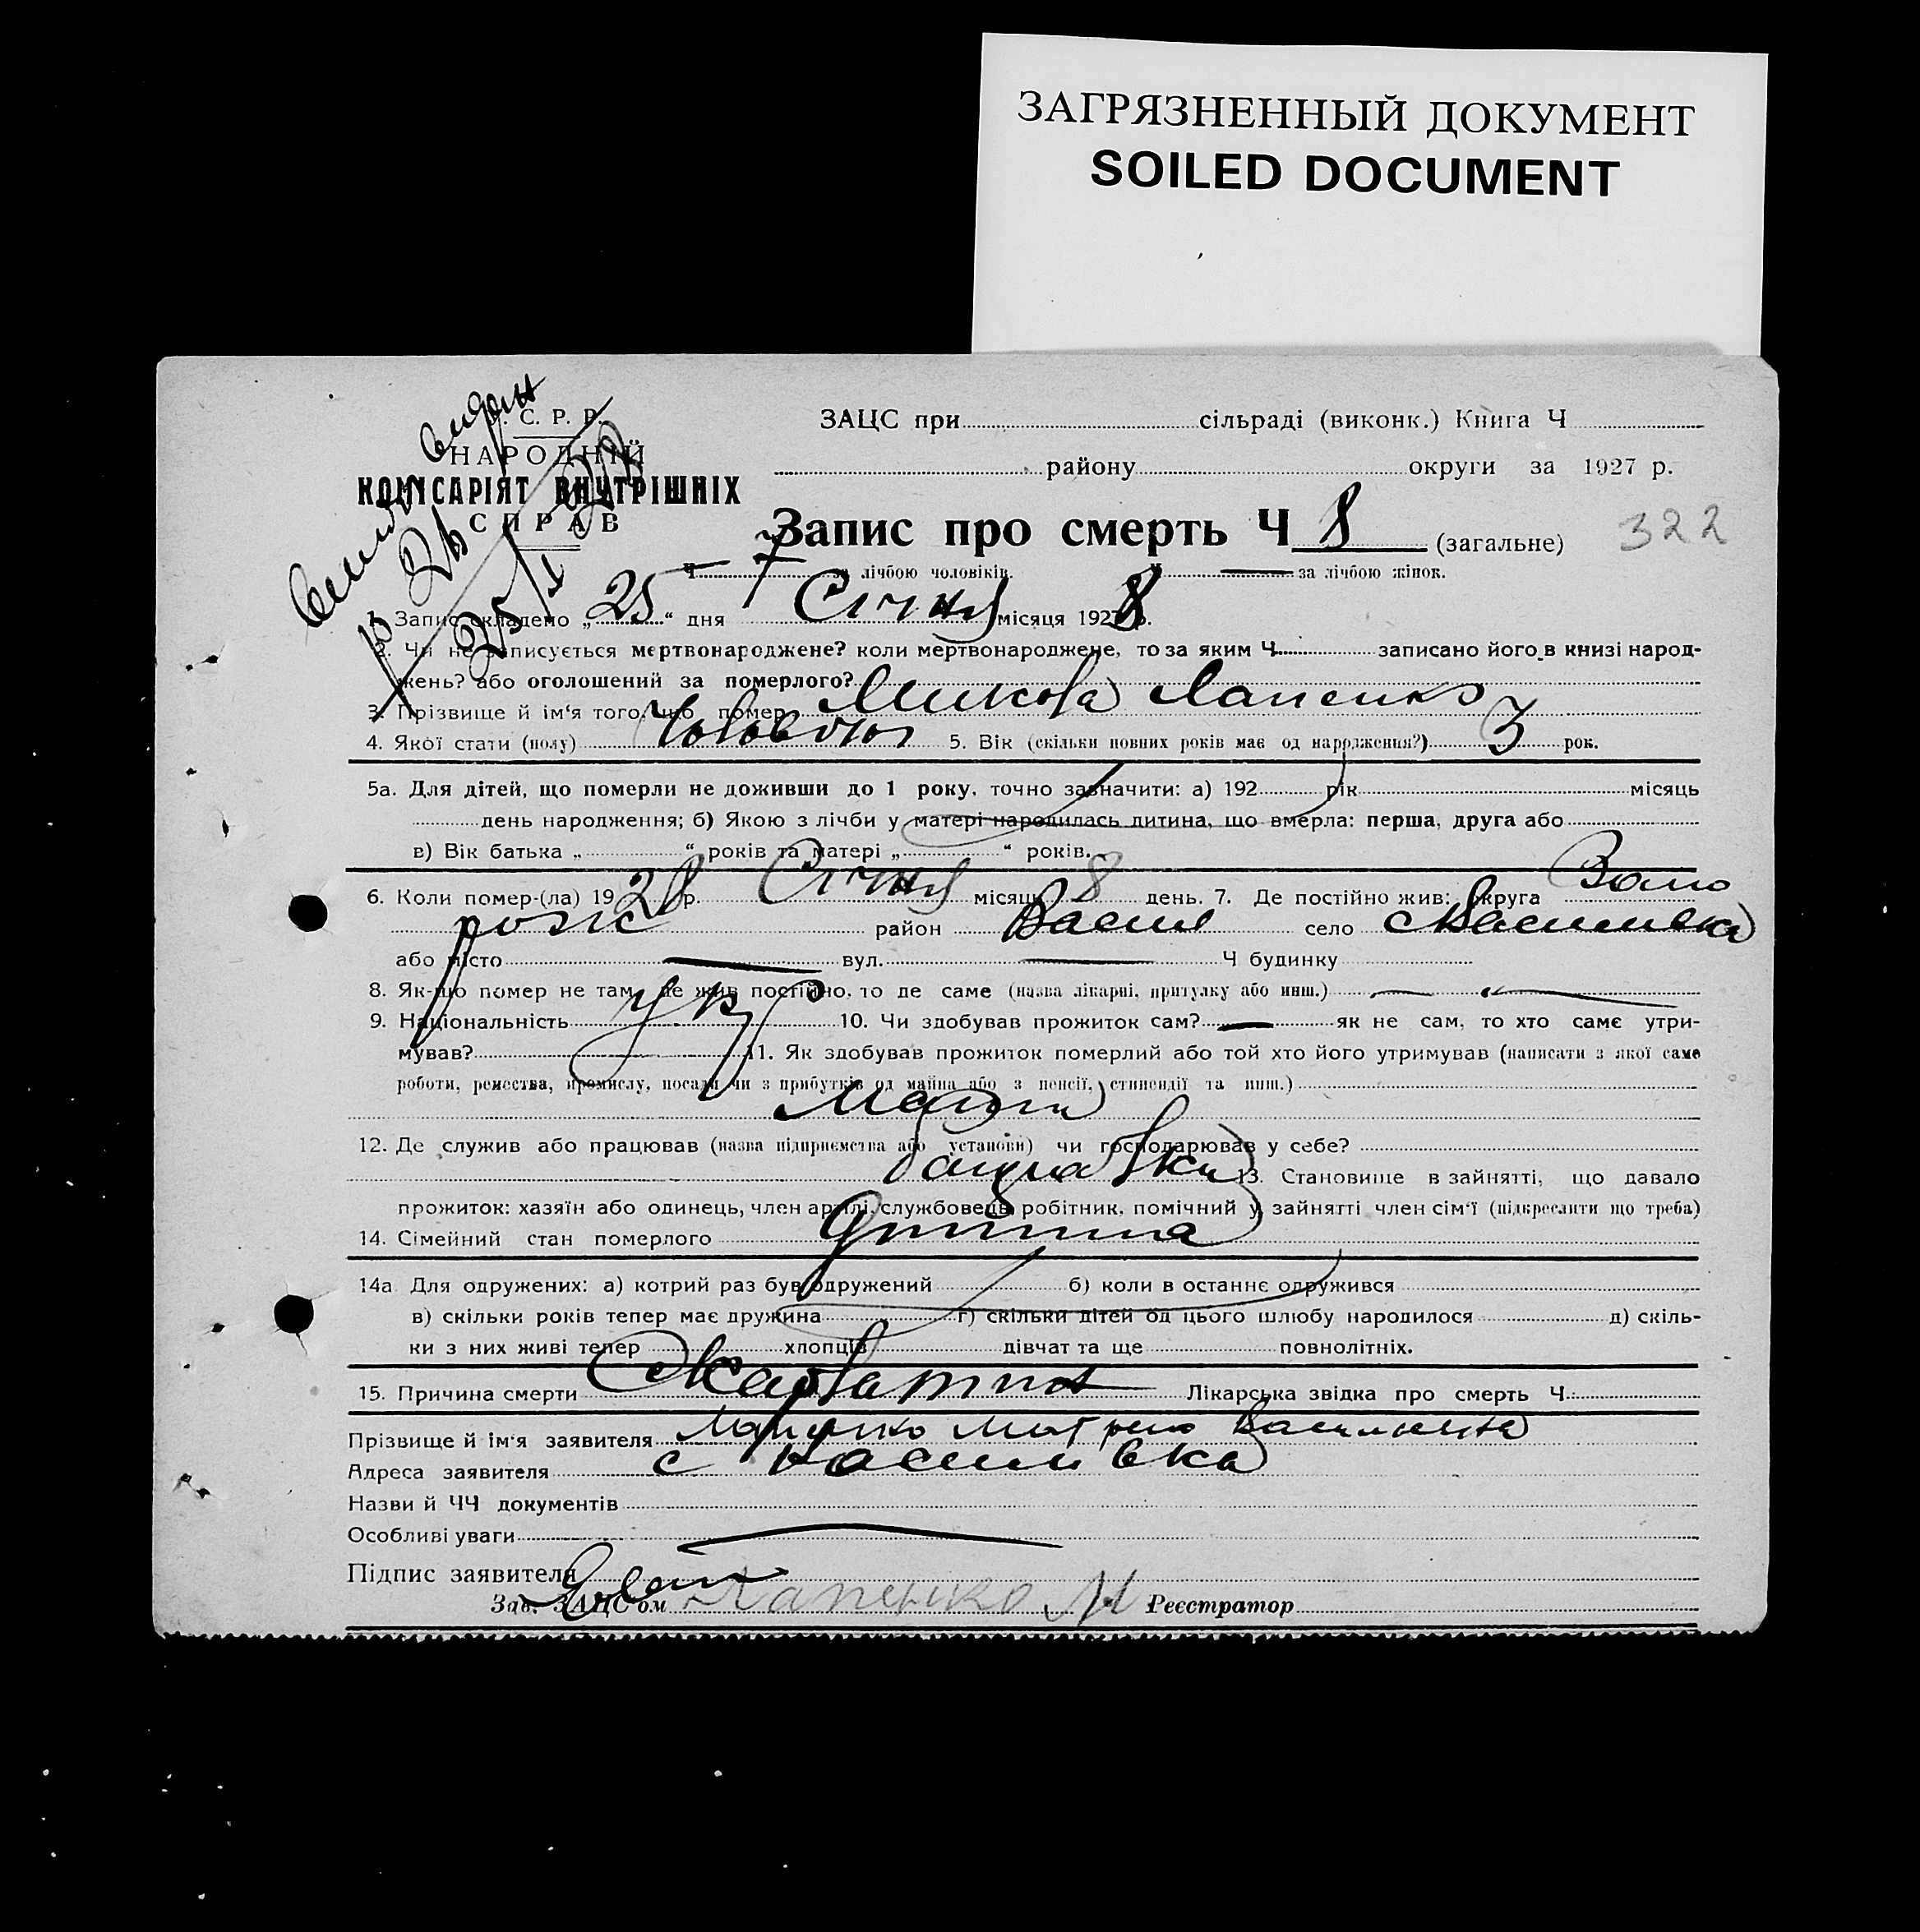 ЗАГРЯЗНЕННЫЙ ДОКУМЕНТ
SOILED DOCUMENT
С. Р. Р.
НАРОДНІЙ
КОМІСАРІЯТ ВНУТРІШНІХ
СПРАВ
25/I 28
ЗАЦС при сільраді (виконк.) Книга Ч
району округи за 1927 р.
Запис про смерть Ч 8 (загальне) 322
Ч 7 за лічбою чоловіків. Ч — за лічбою жінок.
1. Запис складено „ 25 “ дня Січня місяця 1928 р.
2. Чи не записується мертвонароджене? коли мертвонароджене, то за яким Ч записано його в книзі народ-
жень? або оголошений за померлого?
3. Прізвище й ім'я того, що помер Микола Лапенко
4. Якої стати (полу) Чоловічої 5. Вік (скільки повних років має од народження?) 3 рок.
5а. Для дітей, що померли не доживши до 1 року, точно зазначити: а) 192 рік місяць
день народження; б) Якою з лічби у матері народилась дитина, що вмерла: перша, друга або
в) Вік батька „ “ років та матері „ “ років.
6. Коли помер-(ла) 1928 р. Січня місяць 8 день. 7. Де постійно жив: Округа Запо
ріжс район Васил село с Василівка
або місто — вул. — Ч будинку
8. Як-що помер не там, де жив постійно, то де саме (назва лікарні, притулку або инш.) —
9. Національність укр 10. Чи здобував прожиток сам? — як не сам, то хто самє утри-
мував? 11. Як здобував прожиток померлий або той хто його утримував (написати з якої саме
роботи, ремества, промислу, посади чи з прибутків од майна або з пенсії, стипендії та инш.)
Мати
12. Де служив або працював (назва підприємства або установи) чи господарював у себе?
13. Становище в зайнятті, що давало
прожиток: хазяїн або одинець, член артілі, службовець, робітник, помічний у зайнятті член сім'ї (підкреслити що треба)
14. Сімейний стан померлого Дитина
14а Для одружених: а) котрий раз був одружений б) коли в останнє одружився
в) скільки років тепер має дружина г) скільки дітей од цього шлюбу народилося д) скіль-
ки з них живі тепер хлопців дівчат та ще повнолітніх.
15. Причина смерти Скарлатина Лікарська звідка про смерть Ч.
Прізвище й ім'я заявителя
Адреса заявителя с Василівка
Назви й ЧЧ документів
Особливі уваги —
Підпис заявителя
Зав. ЗАЦС'ом Лапенко М Реєстратор